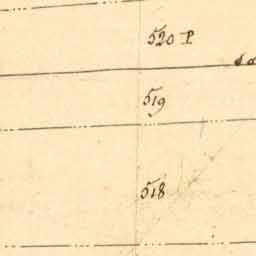 520 P
519
518